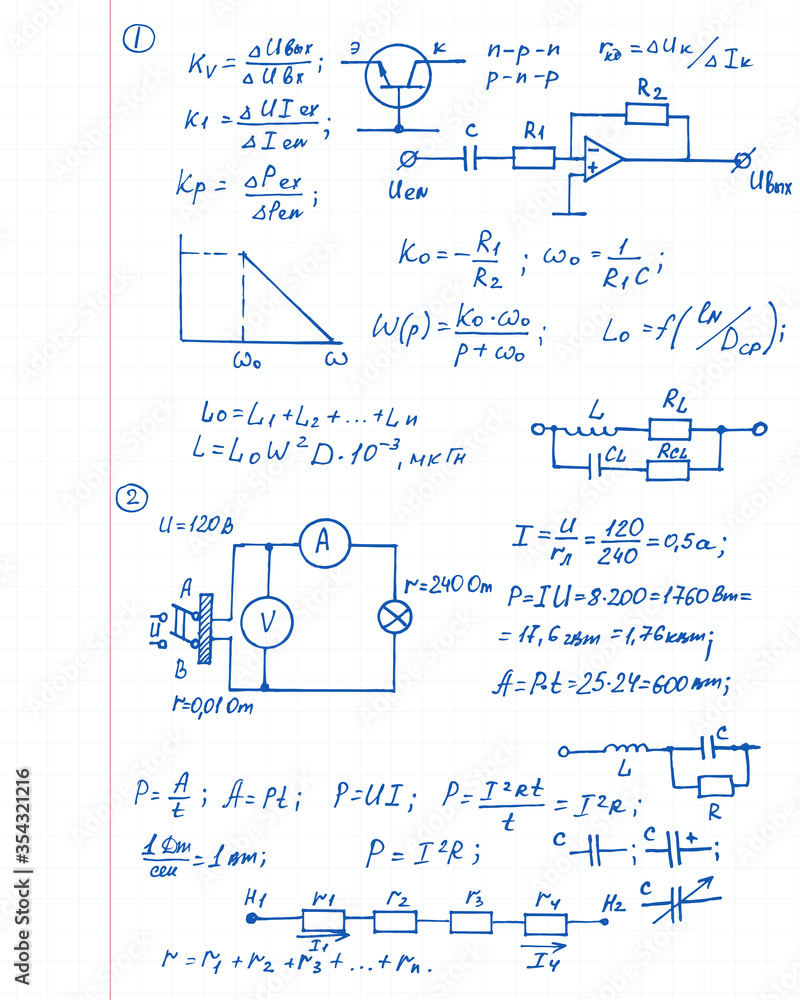 1
Kv = ΔUвых / ΔUвх ;
Э к
n-p-n
p-n-p
rкэ = ΔUк / ΔIк
K1 = ΔUIex / ΔIen ;
Kp = ΔPex / ΔPen ;
C R1 R2
Uen
- +
Uвых
K0 = - R1 / R2 ; ω0 = 1 / R1C ;
ω0 ω
W(p) = K0·ω0 / p + ω0 ; L0 = f(lN / Dcp);
L0 = L1 + L2 + ... + Ln
L = L0W²D·10⁻³, мкГн
L RL
CL RCL
2
U = 120В
A
V
A
U
B
r = 240 Om
r = 0,01 Om
I = U / rл = 120 / 240 = 0,5a;
P = IU = 8·200 = 1760 Вт =
= 17,6 гвт = 1,76 квт;
A = P·t = 25·24 = 600 вт;
L C
R
P = A / t ; A = Pt; P = UI; P = I²Rt / t = I²R;
1 Dm / сек = 1 вт; P = I²R;
C ; C + ;
C
H1 r1 r2 r3 r4 H2
I1 I4
r = r1 + r2 + r3 + ... + rn.
Adobe Stock | #354321216
Adobe Stock